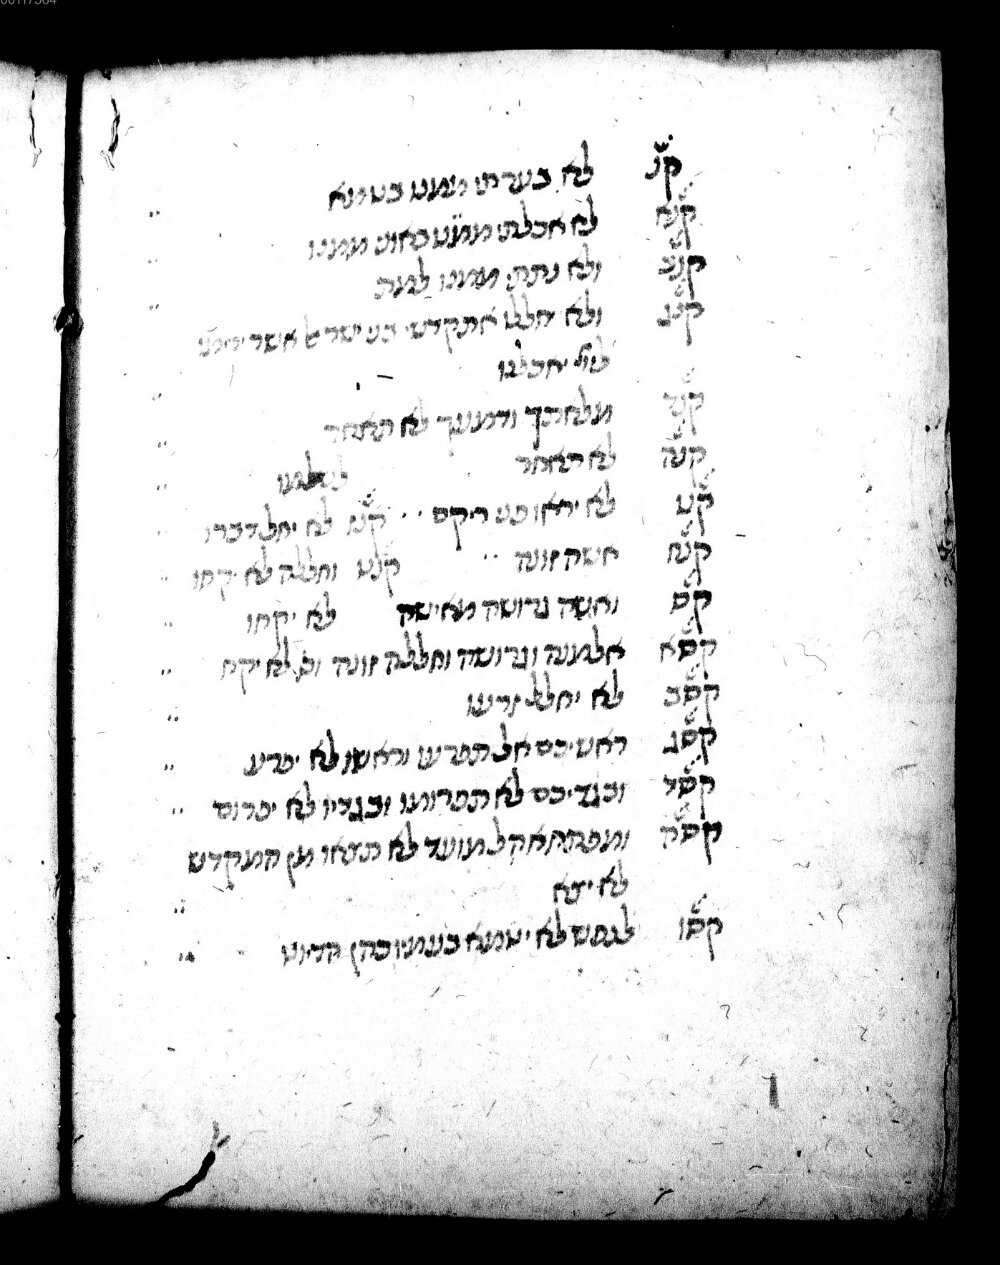 קנ לא בערתי ממנו בטמא
קנא לא אכלתי ממנו באוני ממנו
קנב ולא נתתי ממנו למת
קנג ולא יחללו את קדשי בני ישראל אשר ירימו
לייי יאכלנו
קנד מלאתך ודמעך לא תאחר
קנה לא תאחר לשלמו
קנו לא יראו פני ריקם קנז לא יחל דברו
קנח אשה זונה קנט וחללה לא יקחו
קס ואשה גרושה מאישה לא יקחו
קסא אלמנה וגרושה וחללה זונה וכ לא יקח
קסב לא יחלל זרעו
קסג ראשיכם אל תפרעו וראשו לא יפרע
קסד ובגדיכם לא תפרומו ובגדיו לא יפרום
קסה ומפתח אהל מועד לא תצאו מן המקדש
לא יצא
קסו לנפש לא יטמא בעמיו כהן הדיוט